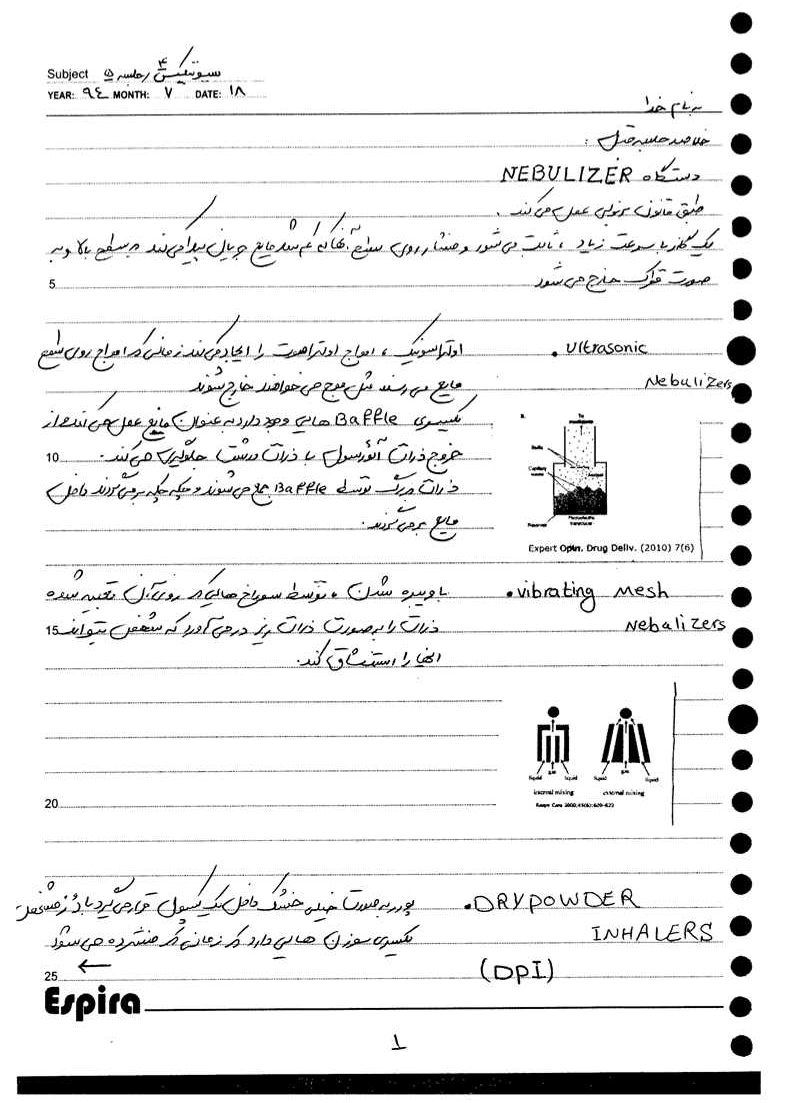 Subject سیوتیکس ۴ / جلسه ۵
YEAR: ۹٤ MONTH: ۷ DATE: ۱۸
به نام خدا
خلاصه جلسه قبل :
دستگاه NEBULIZER
طبق قانون برنولی عمل می‌کند .
یک گاز با سرعت زیاد ، می‌شود و فشار روی سطح مایع جریان پیدا می‌کند به سطح بالا و به
5
صورت خارج می‌شود
• Ultrasonic
Nebulizers
اولتراسونیک ، امواج اولتراصوت را ایجاد می‌کند زمانی که امواج روی سطح
مایع می رسد مثل موج می خواهند خارج شوند
یکسری Baffle هایی وجود دارد به عنوان مانع عمل می کند و از
10
خروج ذرات آئروسول با ذرات درشت جلوگیری می کند.
ذرات بزرگ توسط Baffle جمع می شوند و چکه چکه بر می گردند داخل
مایع بر می گردند.
To
Baffle
Capillary
Aerosol
Reservoir
Piezoelectric
transducer
Expert Opin. Drug Deliv. (2010) 7(6)
• vibrating Mesh
Nebalizers
با ویبره شدن ، توسط سوراخ هایی که روی آن تعبیه شده
15
ذرات را به صورت ذرات ریز در می آورد که شخص بتواند
آنها را استنشاق کند.
liquid gas liquid
internal mixing
liquid gas liquid
external mixing
Respir Care 2000;45(6):609-622
20
• DRY POWDER
INHALERS
(DPI)
پودر به صورت خیلی خشک داخل یک کپسول قرار می گیرد با دُز مشخص
یکسری سوزن هایی دارد که زمانی که فشرده می شود
25 ←
Espira
۱